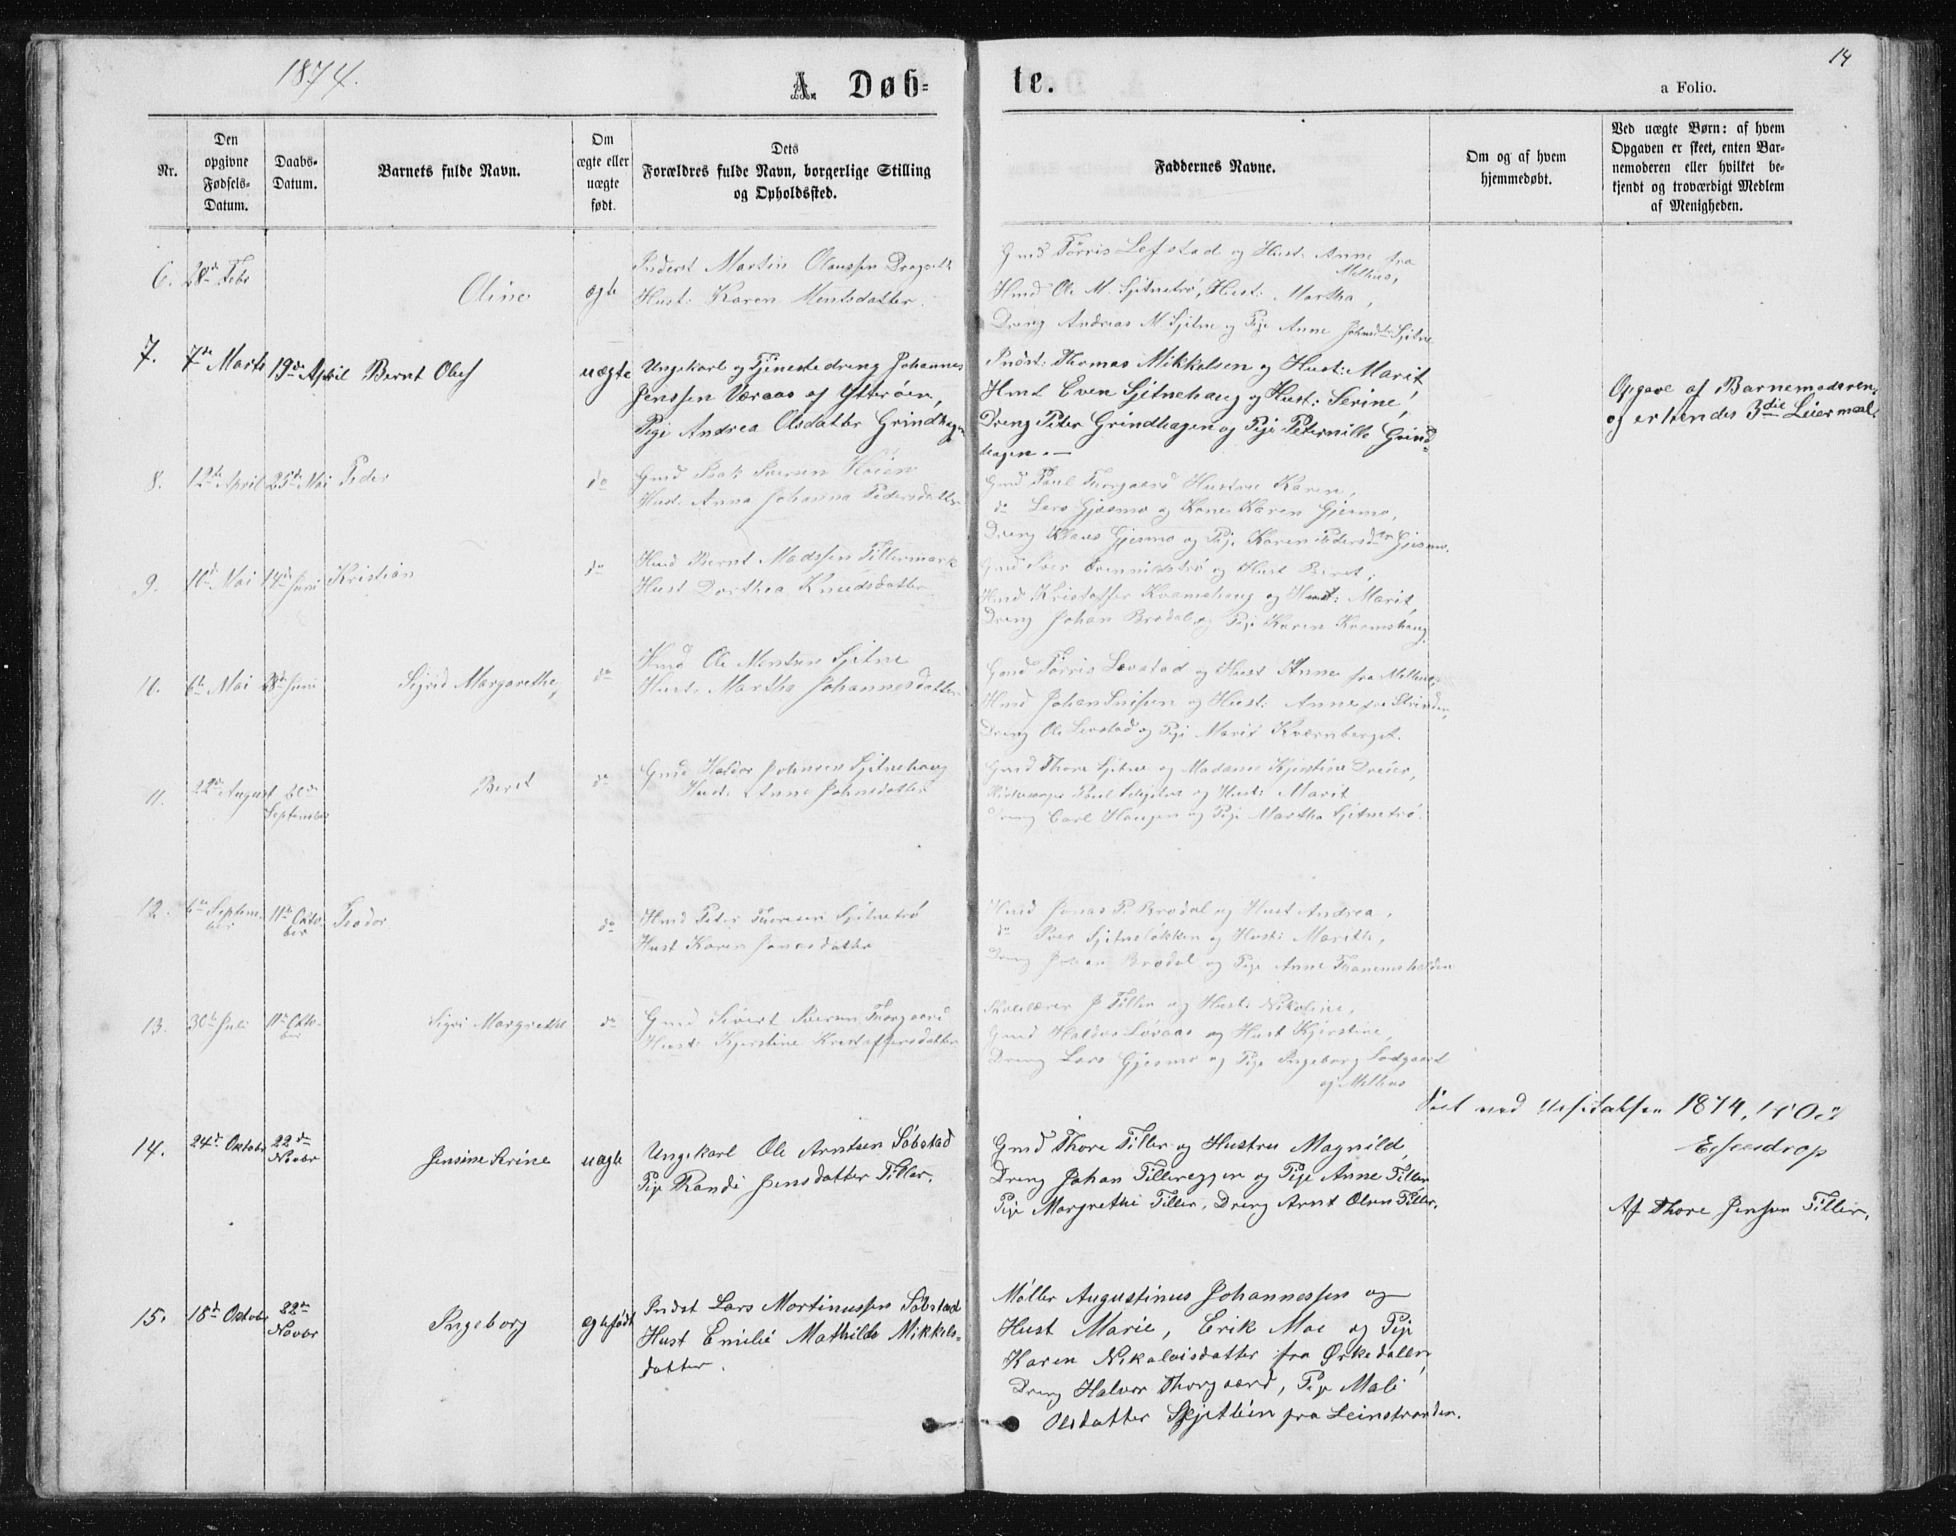 1874.
14
A. Døb=
te.
a Folio.
Nr.
Den
opgivne
Fødsels-
Datum.
Daabs-
Datum.
Barnets fulde Navn.
Om
ægte eller
uægte
født.
Dets
Forældres fulde Navn, borgerlige Stilling
og Opholdssted.
Faddernes Navne.
Om og af hvem
hjemmedøbt.
Ved uægte Børn: af hvem
Opgaven er skeet, enten Bar-
nemoderen eller hvilket be-
kjendt og troværdigt Medlem
af Menigheden.
6. 28de Febr Oline ægte
Inderst Martin Olaussen
Hust: Karen Mentsdatter.
Gmd Tørris Lefstad og Hust: Anne fra
Melhus,
Hmd Ole M. Sjetnetrø, Hust: Martha,
Dreng Andreas M. Sjetne og Pige Anne Sjetne
7. 7de Marts 19de April Bernt Oluf uægte
Ungekarl og Tjenestedreng Johannes
Jenssen Væraas af Ytterøen,
Pige Andrea Olsdatter Grindhagen
Inderst: Thomas Mikkelsen og Hust: Marit,
Hmd Even Sjetnehaug og Hust: Serine,
Dreng Peter Grindhagen og Pige Peternille Grind-
hagen.—
Opgave af Barnemoderen,
og erkendes 3die Leiermaal.
8. 12te April 25de Mai Peder do
Gmd Isak Høien
Hust: Anna Johanna Pedersdatter
Gmd Paul Thorgaard Hustru Karen,
do Lars Gjesmo og Kone Karen Gjesmo,
Dreng Klaus Gjesmo og Pige Karen Pedersdtr Gjesmo.
9. 11te Mai 14de Juni Kristian do
Hmd Bernt Madssen Tillermark
Hust Dorthea Knudsdatter
Gmd Iver og Hust Beret,
Hmd Kristoffer Kvamshaug og Hust: Marit,
Dreng Johan Brødal og Pige Karen Kvamshaug.
10. 6te Mai 28de Juni Sigrid Margarethe, do
Hmd Ole Mentsen Sjetne
Hust: Martha Johannesdatter
Gmd Tørris Levstad og Hust Anne fra Melhus,
Hmd Johan og Hust: Anne fra Strinden,
Dreng Ole Levstad og Pige Marit Kvernberget.
11. 22de August September Beret do
Gmd Haldor Johnsen Sjetnehaug
Hust: Anne Johnsdatter
Gmd Thore Sjetne og Madame Kjerstine Dreier,
Paul og Hust: Marit
Dreng Carl Haugen og Pige Martha Sjetnetrø.
12. 6te Septem-
ber 11te Okto-
ber Teodor do
Hmd Peter Thoresen Sjetnetrø
Hust Karen Jonasdatter
Hmd Jonas P. Brødal og Hust Andrea,
do Iver Sjetneløkken og Hust: Marith,
Dreng Johan Brødal og Pige Anne
13. 30te Juli 11te Okto-
ber Sigri Margrethe do
Gmd Sivert Iversen Thorgaard
Hust: Kjerstine Kristoffersdatter
Skolelærer P Tiller og Hust: Nikoline,
Gmd Haldor Løraas og Hust Kjerstine,
Dreng Lars Gjesmo og Pige Ingeborg
af Melhus
Seet ved Visitatsen 1874,
14. 24de Oktobr 22de
Novbr Jensine Serine uægte
Ungekarl Ole Arntsen Søbstad
Pige Randi Jensdatter Tiller.
Gmd Thore Tiller og Hustru Magnild,
Dreng Johan Tillereggen og Pige Anne Tiller
Pige Margrethe Tiller, Dreng Arnt Olsen Tiller.
Af Thore Jensen Tiller.
15. 18de Oktobr 22de
Novbr Ingeborg ægtefødt
Inderst Lars Martinussen Søbstad
Hust Emilie Mathilde Mikkels-
datter.
Møller Augustinus Johannessen og
Hust Marie, Erik Moe og Pige
Karen Nikolaisdatter fra Ørkedalen,
Dreng Halvor Thorgaard, Pige Mali
Olsdatter Skjetlein fra Leinstranden.